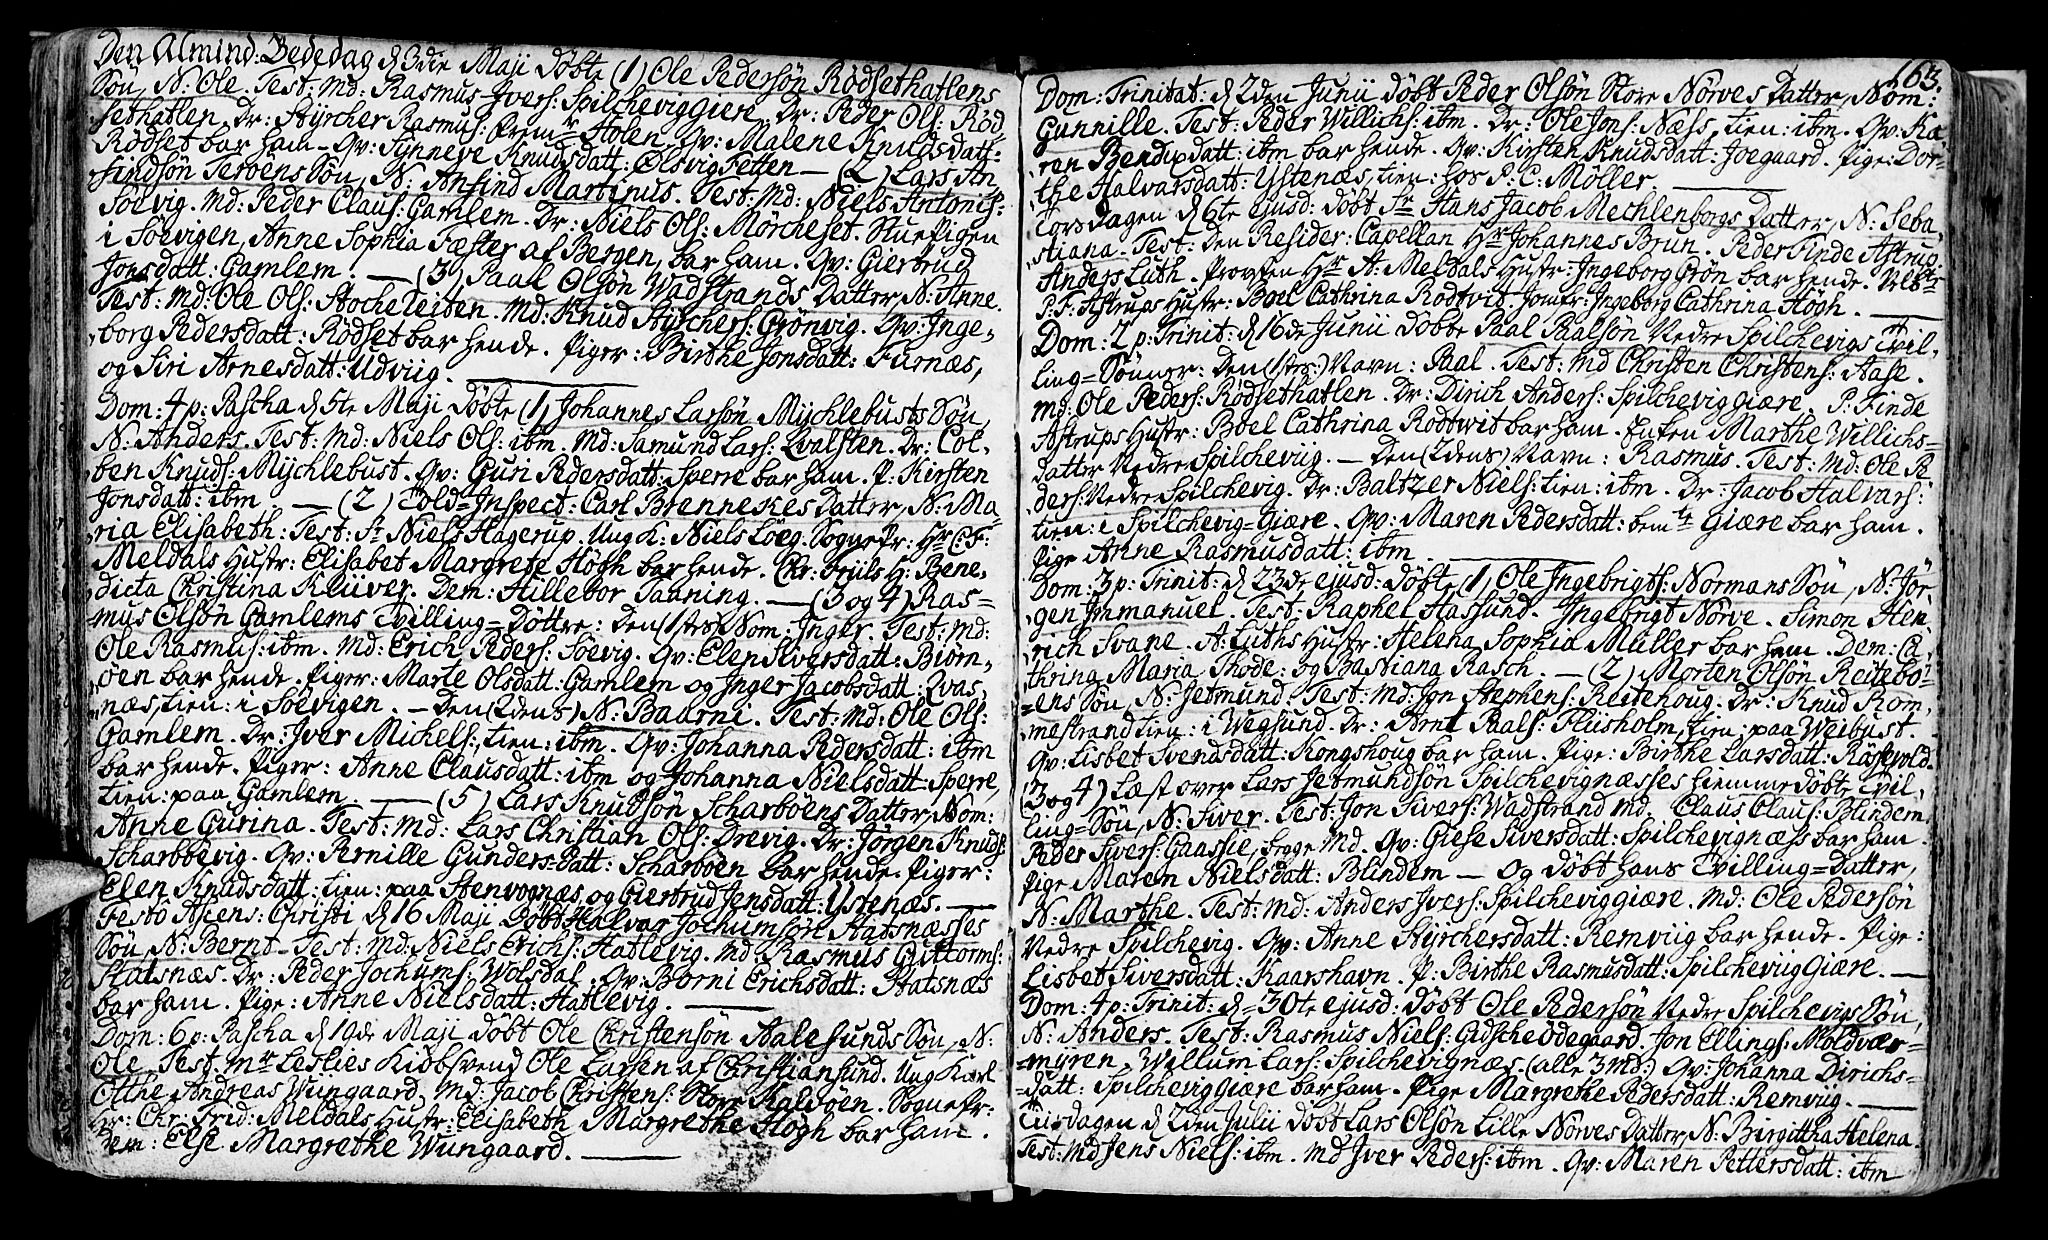 Den Almind: Bededag d 3die Maji døbte (1) Ole Pedersøn Rødsethatlens
Søn, N. Ole. Test: Md: Rasmus Ivers: Spilcheviggiere. Dr: Peder Ols: Rød,
sethatlen. Dr: Styrcher Rasmus: Holen. Qv: Malene Knudsdatt:
Rødset bar ham. Qv: Synneve Knudsdatt: Ølsvigfetten — (2) Lars An
findsøn Terøens Søn, N. Anfind Martinus. Test: Md: Niels Antonis:
Søevig. Md: Peder Claus: Gamlem. Dr: Niels Ols: Mørcheset. Stuepigen
i Søevigen, Anne Sophia Fæster af Bergen, bar ham. Qv: Giertrud
Jonsdatt: Gamlem. — (3) Paal Olsøn Wadstrands Datter, N: Anne.
Test: Md: Ole Ols: Stocheleiten. Md: Knud Styrchers: Grønvig. Qv: Inge,
borg Pedersdatt: Rødset bar hende. Piger: Birthe Jonsdatt: Furnæs,
og Siri Arnesdatt: Udviig.
Dom: 4 p: Pascha d 5te Maji døbte (1) Johannes Larsøn Mychlebusts Søn,
N: Anders. Test: Md: Niels Ols: ibm. Md: Samund Lars: Qvalsten. Dr: Col,
ben Knuds: Mychlebust. Qv: Guri Pedersdatt: Sperre bar ham. P: Kirsten
Jonsdatt: ibm — (2) Told=Inspect: Carl Brennekes Datter, N: Ma,
ria Elisabeth. Test: Sr Niels Hagerup. Ung K: Niels Löeg. Sognepr: Hr C. F:
Meldals Hustr: Elisabet Margrete Høgh bar hende. Chr: Friils H: Bene,
dicta Christina Klüver. Dem: Hillebor Saaning. — (3 og 4) Ras=
mus Olsøn Gamlems Tvilling=Døttre: Den (1stes) Nom: Inger. Test: Md:
Ole Rasmus: ibm. Md: Erich Peders: Søevig. Qv: Elen Siversdatt: Biørn,
øen bar hende. Piger: Marte Olsdatt: Gamlem og Inger Jacobsdatt: Qvas,
næs, tien: i Søevigen. — Den (2dens) N: Baarni. Test: Md: Ole Ols:
Gamlem. Dr: Iver Michels:, tien: ibm. Qv: Johanna Pedersdatt: ibm
bar hende. Piger: Anne Clausdatt: ibm og Johanna Nielsdatt: Sperre,
tien: paa Gamlem. — (5) Lars Knudsøn Scharbøens Datter, Nom:
Anne Gurina. Test: Md: Lars Christian Ols: Drevig. Dr: Jørgen Knuds:
Scharbøevig. Qv: Pernille Gunders=Datt: Scharbøen bar hende. Piger:
Elen Knudsdatt: tien: paa Stenvognæs og Giertrud Jensdatt: Ystenæs. —
Festo Ascens: Christi d 16 Maji døbt Halvar Jochumsøn Statsnæsses
Søn, N: Bernt. Test: Md: Niels Erichs: Hatlevig. Md: Rasmus Guttorms:
Statsnæs. Dr: Peder Jochums: Wolsdal. Qv: Borni Erichsdatt: Statsnæs
bar ham. Pige: Anne Nielsdatt: Hatlevig.
Dom: 6 p: Pascha d 19de Maji døbt Ole Christensøn Aalesunds Søn, N:
Ole. Test. Mr Leslies Kiøbsvend Ole Larsen af Christiansund. Ung Karl
Otthe Andreas Wungaard, Md: Jacob Christens: Store Kalvøen. Sognepr:
Hr: Chr: Frid: Meldals Hustr: Elisabeth Margrethe Høgh bar ham.
Dem: Else Margrethe Wungaard.
163.
Dom: Trinitat: d 2den Junii døbt Peder Olsøn Store Nørves Datter, Nom:
Gunnille. Test: Peder Willichs: ibm. Dr: Ole Jons: Næss, tien: ibm. Qv: Ka,
ren Bendixdatt: ibm bar hende. Qv: Kirsten Knudsdatt: Joegaard. Pige: Dor,
the Halvarsdatt: Ystenæs, tien: hos P: C: Møller.
Torsdagen d 6te ejusd: døbt Sr Hans Jacob Mechlenborgs Datter, N: Seba,
stiana. Test: Den Resider: Capellan Hr Johannes Brun. Peder Finde Astrup.
Anders Luth. Provsten Hr A: Meldals Hustr: Ingeborg Grøn bar hende.
P. F: Astrups Hustr: Boel Cathrina Rodtvit. Jomfr: Ingeborg Cathrina Høgh.
Dom: 2 p: Trinit: d 16de Junii døbte Paal Paalsøn Nedre Spilchevigs Tvil,
ling=Sønner: Den (1stes) Navn: Paal. Test: Md Christen Christens: Aase.
Md: Ole Peders: Rødsethatlen. Dr: Dirich Anders: Spilcheviggiære. P: Finde
Astrups Hustr: Boel Cathrina Rodtwit bar ham. Enken Marthe Willichs=
datter Nedre Spilcheviig. — Den (2dens) Navn: Rasmus. Test: Md: Ole Pe
ders: Nedre Spilchevig. Dr: Baltzer Niels: tien: ibm. Dr: Jacob Halvars:
tien: i Spilchevig=Giære. Qv: Maren Pedersdatt: bemte Giære bar ham.
Pige Anne Rasmusdatt: ibm.
Dom: 3 p: Trinit: d 23de ejusd: døbte (1) Ole Ingebrigts: Normans Søn, N: Jør,
gen Immanuel. Test: Raphel Haslund. Ingebrigt Nørve. Simon Hen,
rich Svane. A: Luths Hustr: Helena Sophia Müller bar ham. Dem: Ca,
thrina Maria Thode: og Bastiana Rasch. — (2) Morten Olsøn Reitebø,
ens Søn, N: Jetmund. Test: Md: Jon Stephens: Reitehoug. Dr: Knud Rom,
mestrand tien: i Wegsund. Dr: Arnt Paals: Fliisholm, tien: paa Weibust.
Qv: Lisbet Svendsdatt: Kongshoug bar ham. Pige: Birthe Larsdatt: Røssevold.
(3 og 4) Læst over Lars Jetmundsøn Spilchevignæsses hiemmedøbte Tvil,
ling=Søn, N: Siver. Test: Jon Sivers: Wadstrand Md. Claus Claus: Blindem
Peder Sivers: Gaassie, begge Md. Qv: Giese Siversdatt: Spilchevignæss bar ham.
Pige Maren Nielsdatt: Blindem — Og døbt hans Tvilling=Datter,
N: Marthe. Test: Md: Anders Ivers: Spilcheviggiære. Md: Ole Pedersøn
Nedre Spilchevig. Qv: Anne Styrchersdatt: Remviig bar hende. Pige:
Lisbet Siversdatt: Kaarshavn. P: Birthe Rasmusdatt: Spilcheviiggiære. —
Dom: 4 p: Trinit: d 30te ejusd: døbt Ole Pedersøn Nedre Spilchevigs Søn,
N: Anders. Test: Rasmus Niels: Gidsche Ødegaard. Jon Ellings: Moldvær=
myren. Willum Lars: Spilchevignæs. (alle 3 Md:) Qv: Johanna Dirichs=
datt: Spilcheviggiære bar ham. Pige Margrethe Pedersdatt: Remviig. —
Tiisdagen d 2den Julii døbt Lars Olsøn Lille Nørves Datter, N. Birgittha Helena.
Test: Md Jens Niels: ibm. Md Iver Peders: ibm. Qv: Maren Pettersdatt: ibm